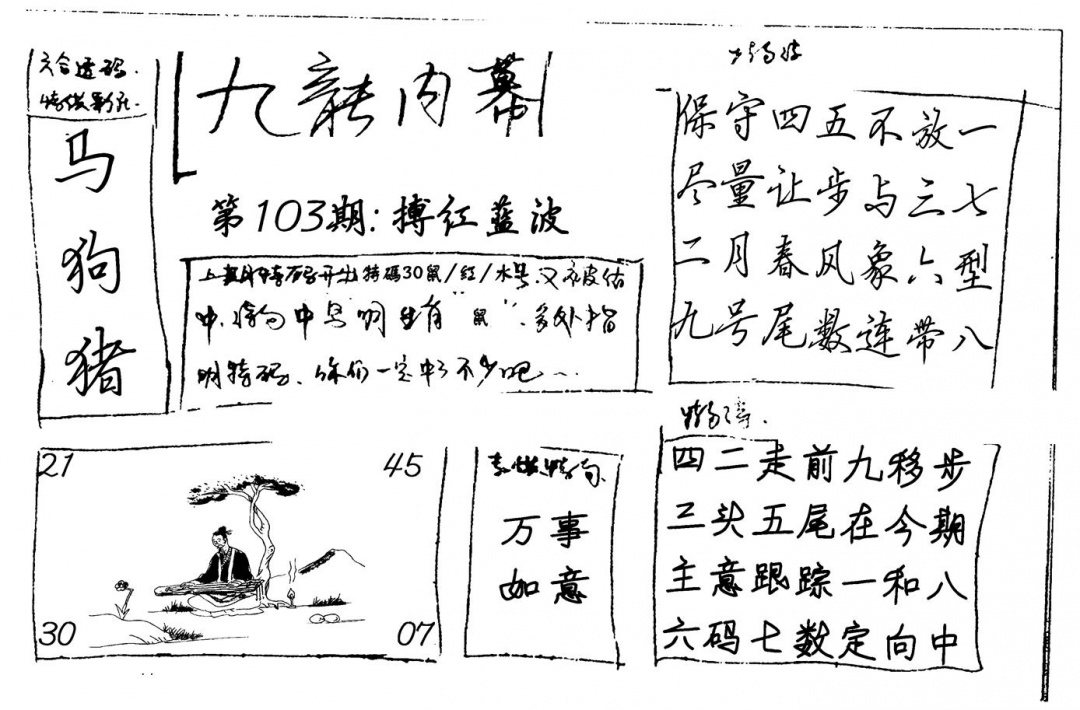 六合透码
马
狗
猪
九龍内幕
第103期:搏红蓝波
上期特码开出特碼30鼠/红/水号.又被估
中.特句中 明 有“鼠”.多处指
明特码、你们一定中了不少吧
保守四五不放一
尽量让步与三七
二月春风象六型
九号尾数连带八
21
45
30
07
万事
如意
四二走前九移步
三头五尾在今期
主意跟踪一和八
六码七数定向中